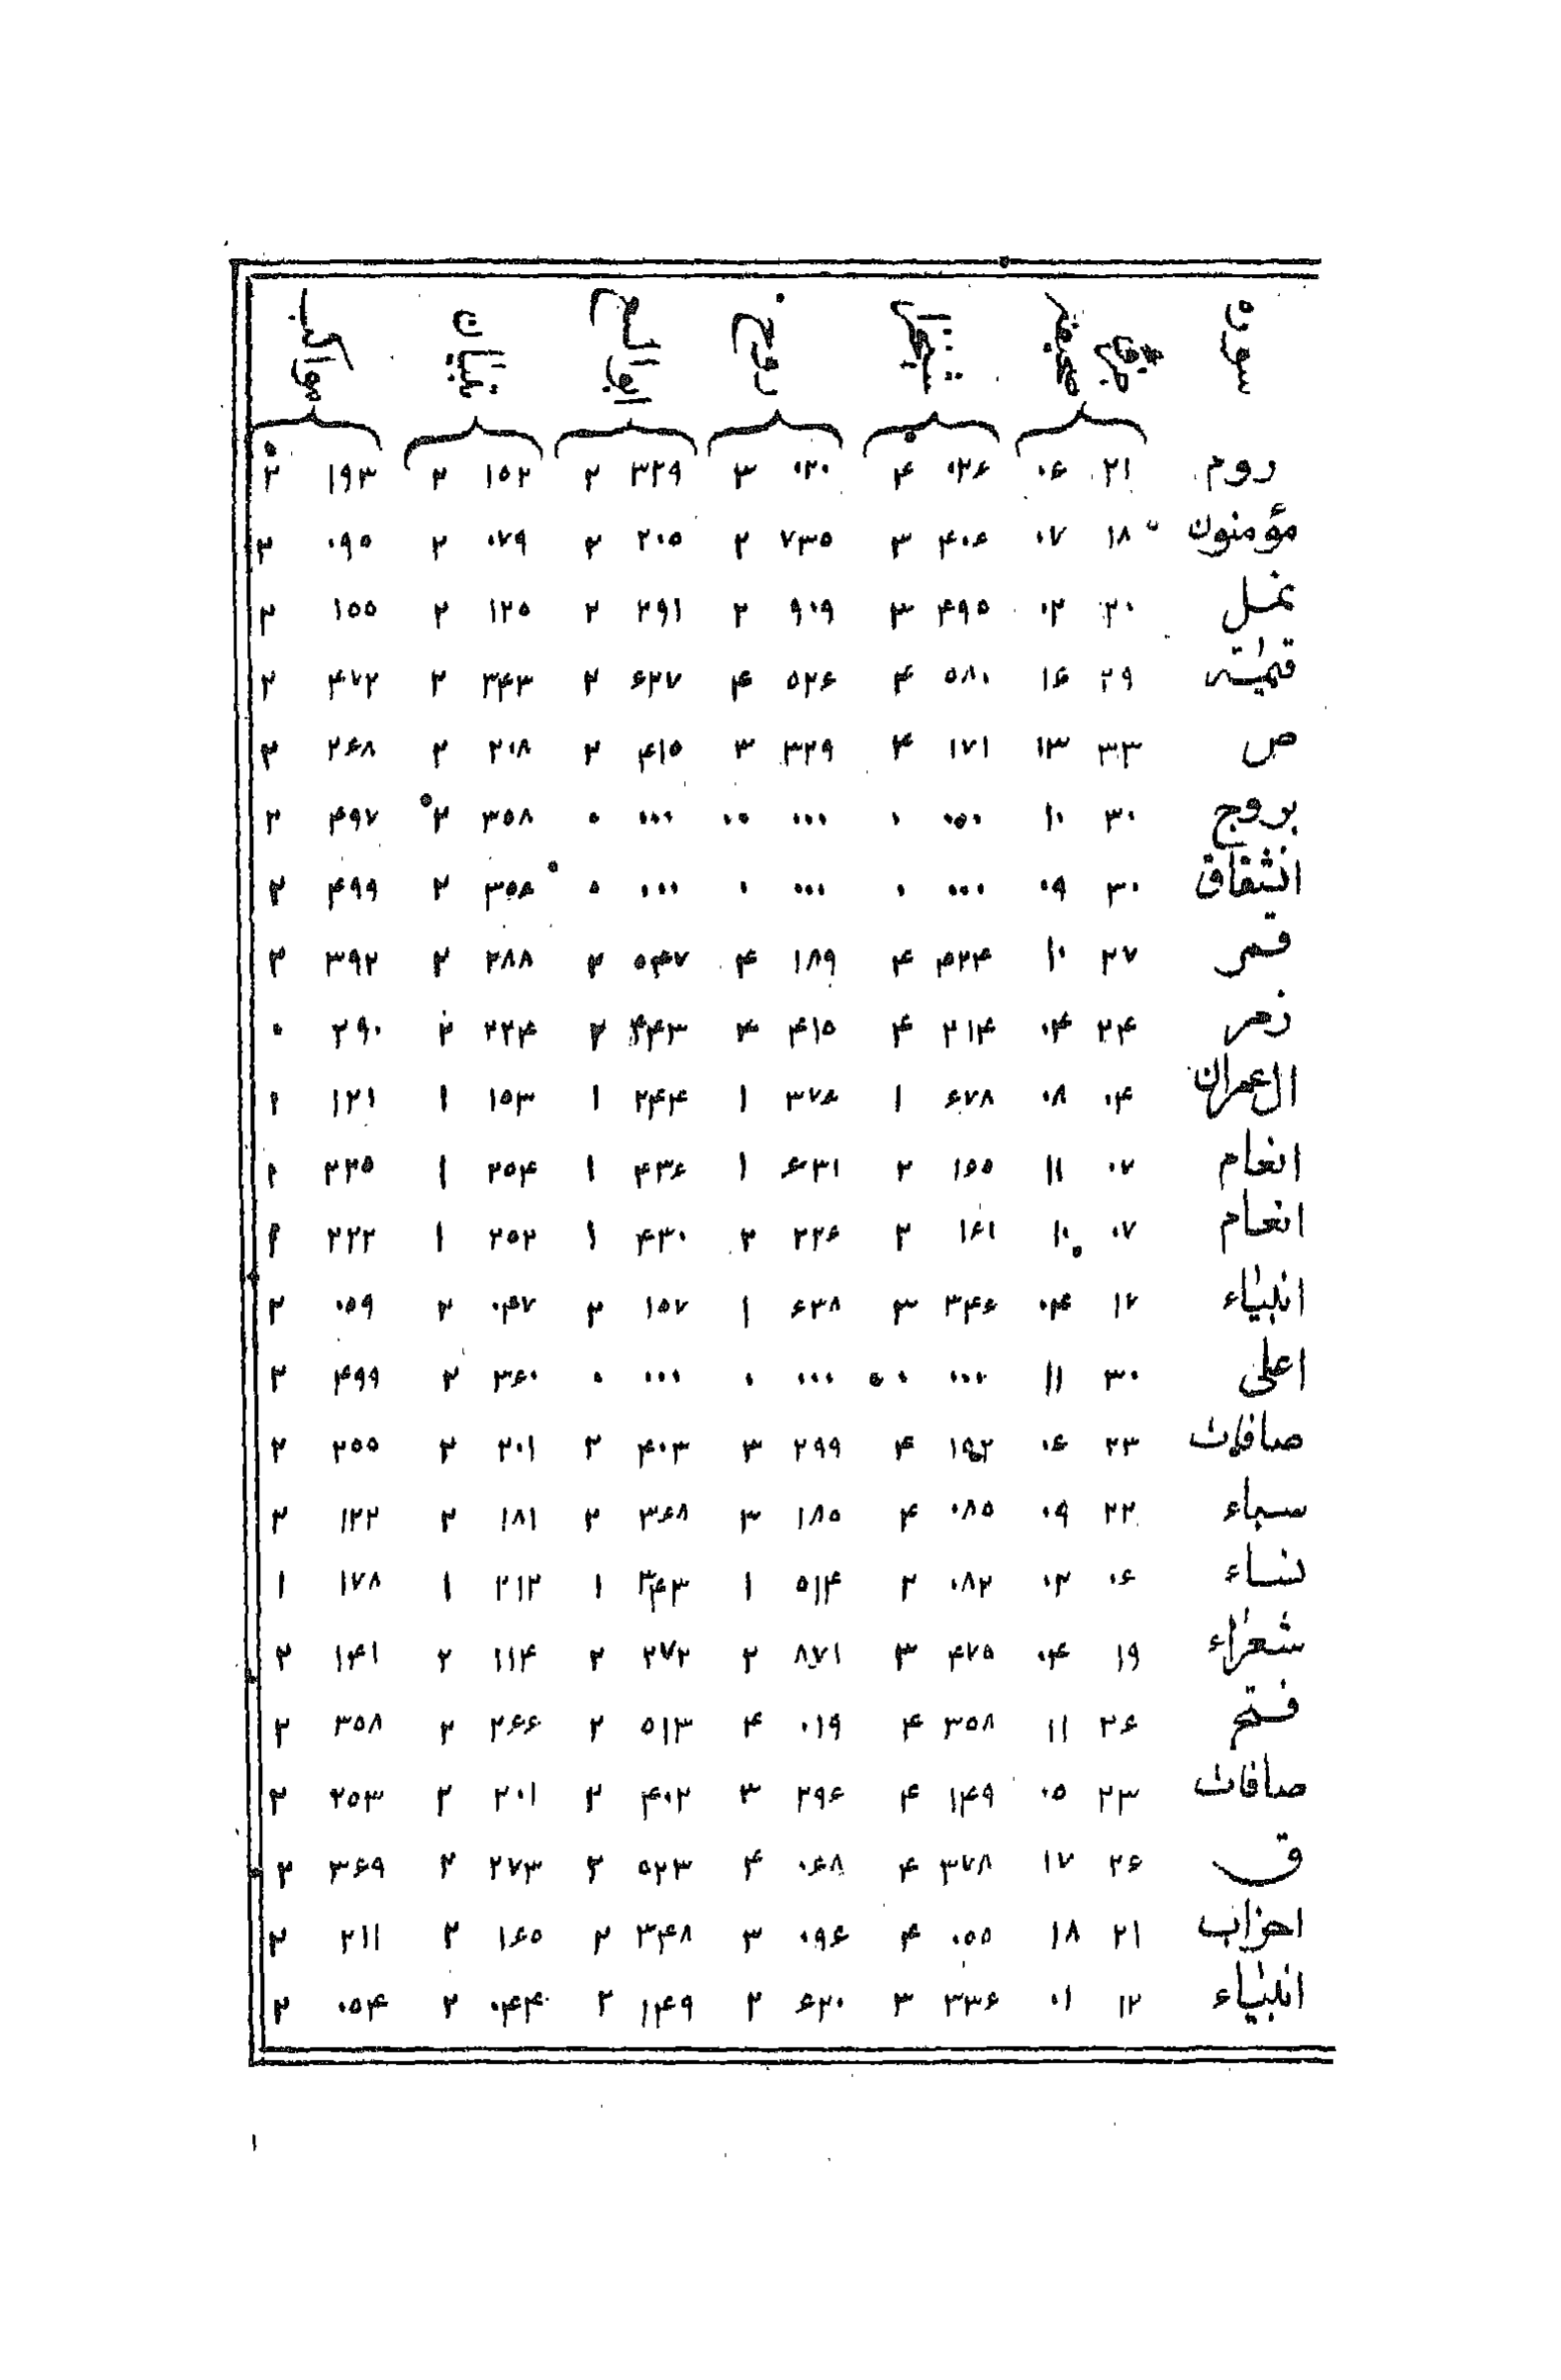 سوره
روم ۲۱ ۰۶ ۰۲۶ ۴ ۰۲۰ ۳ ۳۲۹ ۲ ۱۵۲ ۲ ۱۹۳ ۲
مؤمنون ۱۸ ۰۷ ۴۰۶ ۳ ۷۳۵ ۲ ۲۰۵ ۲ ۰۷۹ ۲ ۰۹۵ ۲
نمل ۲۰ ۰۲ ۴۹۵ ۳ ۹۰۹ ۲ ۲۹۱ ۲ ۱۲۵ ۲ ۱۵۵ ۲
قیٰمة ۲۹ ۱۶ ۵۸۰ ۴ ۵۲۶ ۴ ۶۲۷ ۲ ۳۴۳ ۲ ۴۷۲ ۲
ص ۳۳ ۱۳ ۱۷۱ ۴ ۳۲۹ ۳ ۴۱۵ ۲ ۲۰۸ ۲ ۲۶۸ ۲
بروج ۳۰ ۱۰ ۰۵۰ ۰ ۰۰۰ ۰۰ ۰۰۰ ۰ ۳۵۸ ۲ ۴۹۷ ۲
انشقاق ۳۰ ۰۹ ۰۰۰ ۰ ۰۰۰ ۰ ۰۰۰ ۰ ۳۵۶ ۲ ۴۹۹ ۲
قمر ۲۷ ۱۰ ۴۲۴ ۴ ۱۸۹ ۴ ۵۴۷ ۲ ۲۸۸ ۲ ۳۹۲ ۲
زمر ۲۴ ۰۴ ۲۱۴ ۴ ۴۱۵ ۳ ۴۴۳ ۲ ۲۲۴ ۲ ۲۹۰ ۰
ال عمران ۰۴ ۰۸ ۶۷۸ ۱ ۳۷۶ ۱ ۲۴۴ ۱ ۱۵۳ ۱ ۱۲۱ ۱
انعام ۰۷ ۱۱ ۱۵۵ ۲ ۶۳۱ ۱ ۴۳۶ ۱ ۲۵۴ ۱ ۲۲۵ ۱
انعام ۰۷ ۱۰ ۱۶۱ ۲ ۲۲۶ ۲ ۴۳۰ ۱ ۲۵۲ ۱ ۲۲۲ ۱
انبیٰاء ۱۷ ۰۴ ۳۴۶ ۳ ۶۳۸ ۱ ۱۵۷ ۲ ۰۴۷ ۲ ۰۵۹ ۲
اعلی ۳۰ ۱۱ ۰۰۰ ۰۰ ۰۰۰ ۰ ۰۰۰ ۰ ۳۶۰ ۲ ۴۹۹ ۲
صافات ۲۳ ۰۶ ۱۵۲ ۴ ۲۹۹ ۳ ۴۰۳ ۲ ۲۰۱ ۲ ۲۵۵ ۲
سباء ۲۲ ۰۹ ۰۸۵ ۴ ۱۸۵ ۳ ۳۶۸ ۲ ۱۸۱ ۲ ۱۲۲ ۲
نساء ۰۶ ۰۲ ۰۸۲ ۲ ۵۱۴ ۱ ۳۴۳ ۱ ۲۱۲ ۱ ۱۷۸ ۱
شعرٰاء ۱۹ ۰۴ ۴۷۵ ۳ ۸۷۱ ۲ ۲۷۲ ۲ ۱۱۴ ۲ ۱۴۱ ۲
فتح ۲۶ ۱۱ ۳۵۸ ۴ ۰۱۹ ۴ ۵۱۳ ۲ ۲۶۶ ۲ ۳۵۸ ۲
صافات ۲۳ ۰۵ ۱۴۹ ۴ ۲۹۶ ۳ ۴۰۲ ۲ ۲۰۱ ۲ ۲۵۳ ۲
ق ۲۶ ۱۷ ۳۷۸ ۴ ۰۶۸ ۴ ۵۲۳ ۲ ۲۷۳ ۲ ۳۶۹ ۲
احزاب ۲۱ ۱۸ ۰۵۵ ۴ ۰۹۶ ۳ ۳۴۸ ۲ ۱۶۵ ۲ ۲۱۱ ۲
انبیٰاء ۱۲ ۰۱ ۳۳۶ ۳ ۶۲۰ ۲ ۱۴۹ ۲ ۰۴۴ ۲ ۰۵۴ ۲